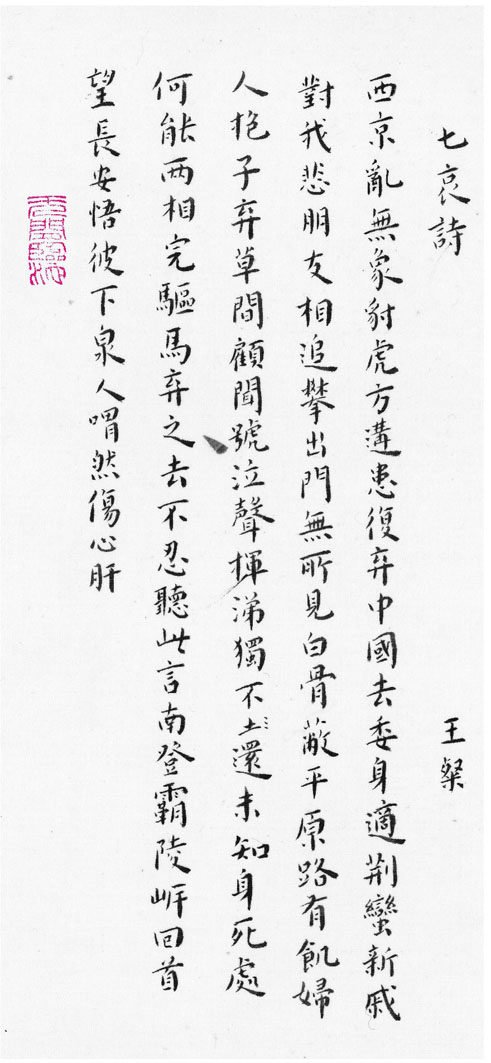 七哀詩 王粲
西京亂無象豺虎方遘患復弃中國去委身適荆蠻新戚
對我悲朋友相追攀出門無所見白骨蔽平原路有飢婦
人抱子弃草間顧聞號泣聲揮涕獨不土還未知身死處
何能兩相完驅馬弃之去不忍聽此言南登霸陵岸回首
望長安悟彼下泉人喟然傷心肝